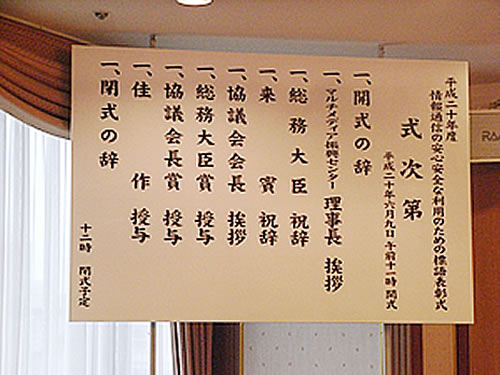 平成二十年度
情報通信の安心安全な利用のための標語表彰式
式次第
平成二十年六月九日 午前十一時 開式
一、開式の辞
一、マルチメディア振興センター 理事長 挨拶
一、総務大臣 祝辞
一、来賓 祝辞
一、協議会会長 挨拶
一、総務大臣賞 授与
一、協議会長賞 授与
一、佳作 授与
一、閉式の辞
十二時 閉式予定